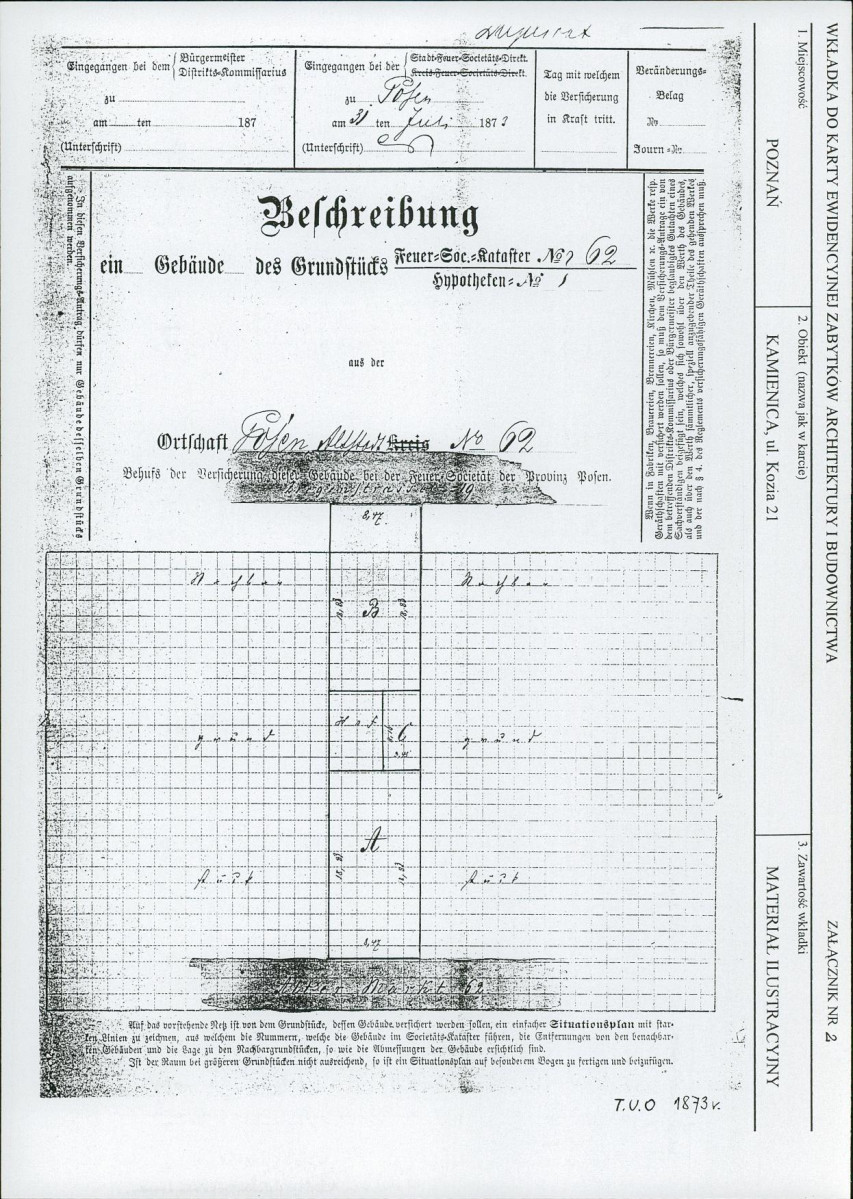 Duplicat
Eingegangen bei dem { Bürgermeister
Distrikts-Kommissarius
zu
am ten 187
(Unterschrift)
Eingegangen bei der { Stadt-Feuer-Societäts-Direkt.
Kreis-Feuer-Societäts-Direkt.
zu Posen
am 31 ten Juli 1873
(Unterschrift)
Tag mit welchem
die Versicherung
in Kraft tritt.
Veränderungs-
Belag
No
Journ.-Nr.
In diesen Versicherungs-Antrag dürfen nur Gebäude desselben Grundstücks
aufgenommen werden.
Beschreibung
ein Gebäude des Grundstücks Feuer-Soc.-Kataster No 62
Hypotheken-No
aus der
Ortschaft Posen Altstadt Kreis No 62
Behufs der Versicherung dieser Gebäude bei der Feuer-Societät der Provinz Posen.
Wenn in Fabriken, Brauereien, Brennereien, Kirchen, Mühlen ꝛc. die Werke resp.
Geräthschaften mit versichert werden sollen, so muß dem Versicherungs-Antrage ein von
dem betreffenden Distrikts-Kommissarius oder Bürgermeister beglaubigtes Gutachten eines
Sachverständigen beigefügt sein, welches sich sowohl über den Werth des Gebäudes,
als auch über den Werth sämmtlicher, speziell anzugebender Theile des gehenden Werkes
und der nach § 4. des Reglements versicherungsfähigen Geräthschaften aussprechen muß.
8,47
Nachbar Nachbar
B
Hof C
grund grund
A
stück stück
8,47
Alter Markt 62
Auf das vorstehende Netz ist von dem Grundstücke, dessen Gebäude versichert werden sollen, ein einfacher Situationsplan mit star-
ken Linien zu zeichnen, aus welchem die Nummern, welche die Gebäude im Societäts-Kataster führen, die Entfernungen von den benachbar-
ten Gebäuden und die Lage zu den Nachbargrundstücken, so wie die Abmessungen der Gebäude ersichtlich sind.
Ist der Raum bei größeren Grundstücken nicht ausreichend, so ist ein Situationsplan auf besonderem Bogen zu fertigen und beizufügen.
T.U.O 1873 r.
WKŁADKA DO KARTY EWIDENCYJNEJ ZABYTKÓW ARCHITEKTURY I BUDOWNICTWA
ZAŁĄCZNIK NR 2
1. Miejscowość
POZNAŃ
2. Obiekt (nazwa jak w karcie)
KAMIENICA, ul. Kozia 21
3. Zawartość wkładki
MATERIAŁ ILUSTRACYJNY